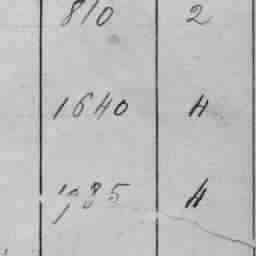 810 2
1640 4
1985 4